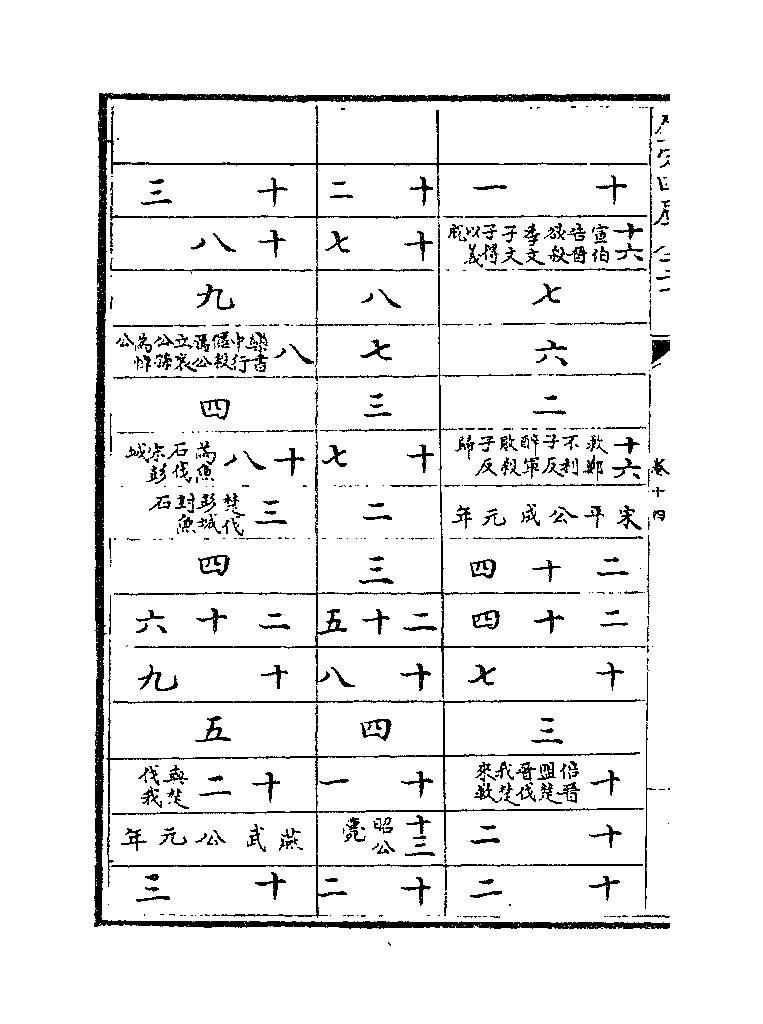 欽定四庫全書
卷十四
十一
十六 宣伯告晉欲殺季文子文子得以義脫
七
六
二
十六 救鄭不利子反醉軍敗殺子反歸
宋平公成元年
二十四
二十四
十七
三
十 倍晉盟楚晉伐我楚來救
十二
十二
十二
十七
八
七
三
十七
二
三
二十五
十八
四
十一
十三 昭公薨
十二
十三
十八
九
八 欒書中行偃殺厲公立襄公孫為悼公
四
十八 為魚石伐宋彭城
三 楚伐彭城封魚石
四
二十六
十九
五
十二 與楚伐我
燕武公元年
十三